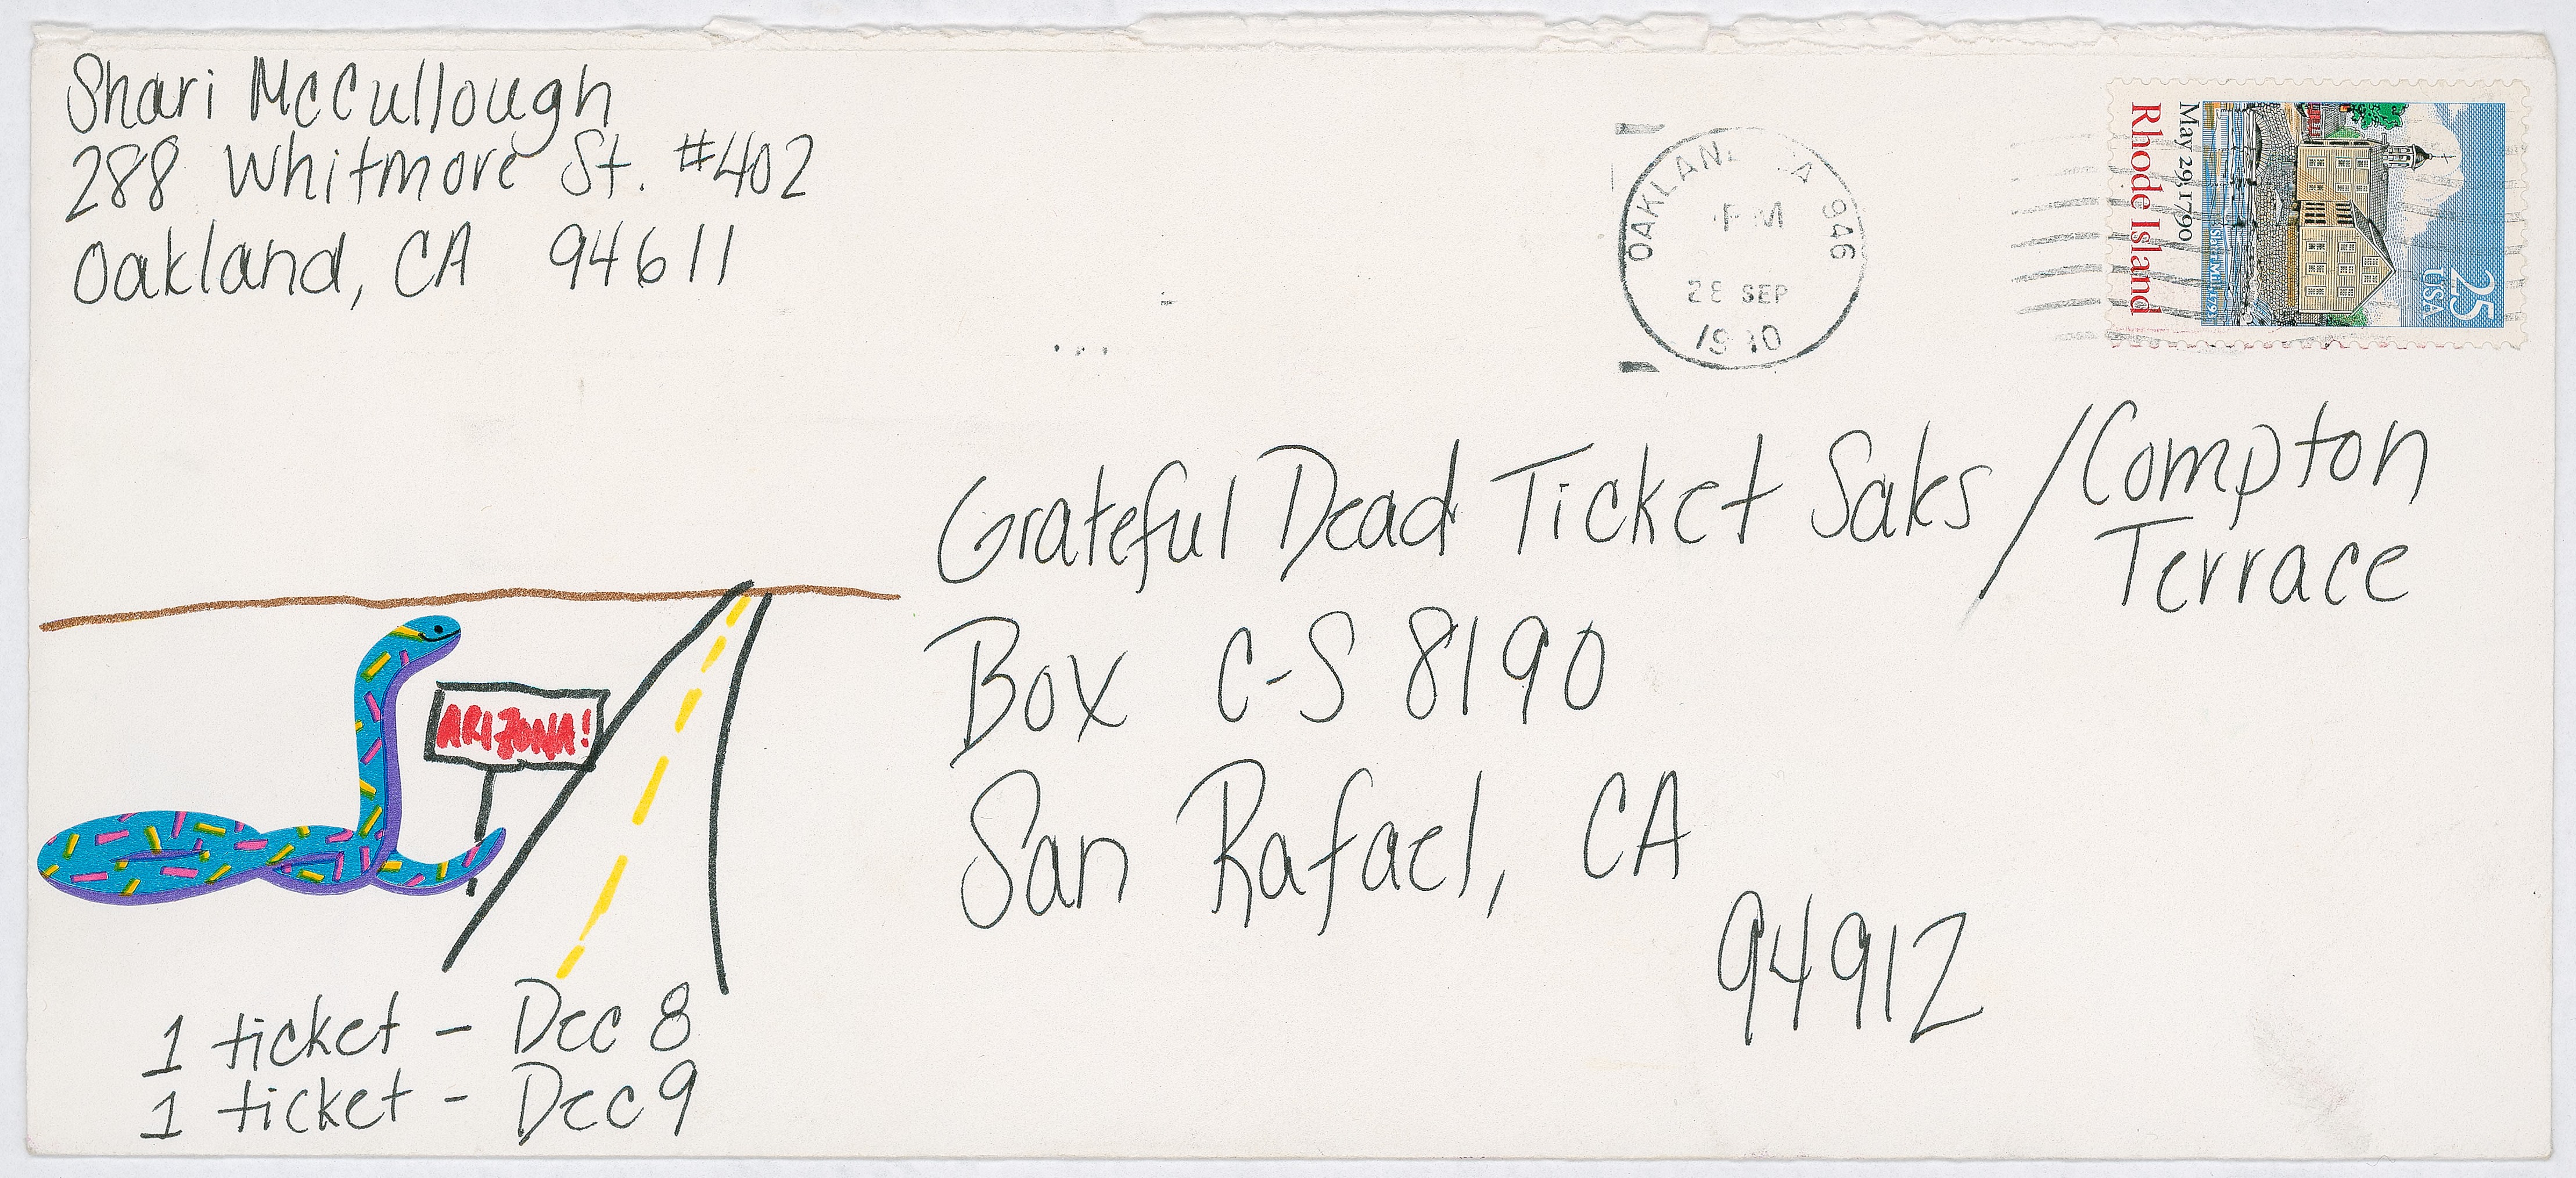 Shari McCullough
288 Whitmore St. #402
Oakland, CA 94611
OAKLAN A 946
PM
28 SEP
1990
25
USA
Slater Mill 1793
May 29, 1790
Rhode Island
Grateful Dead Ticket Sales / Compton
Terrace
Box C-S 8190
San Rafael, CA
94912
ARIZONA!
1 ticket - Dec 8
1 ticket - Dec 9